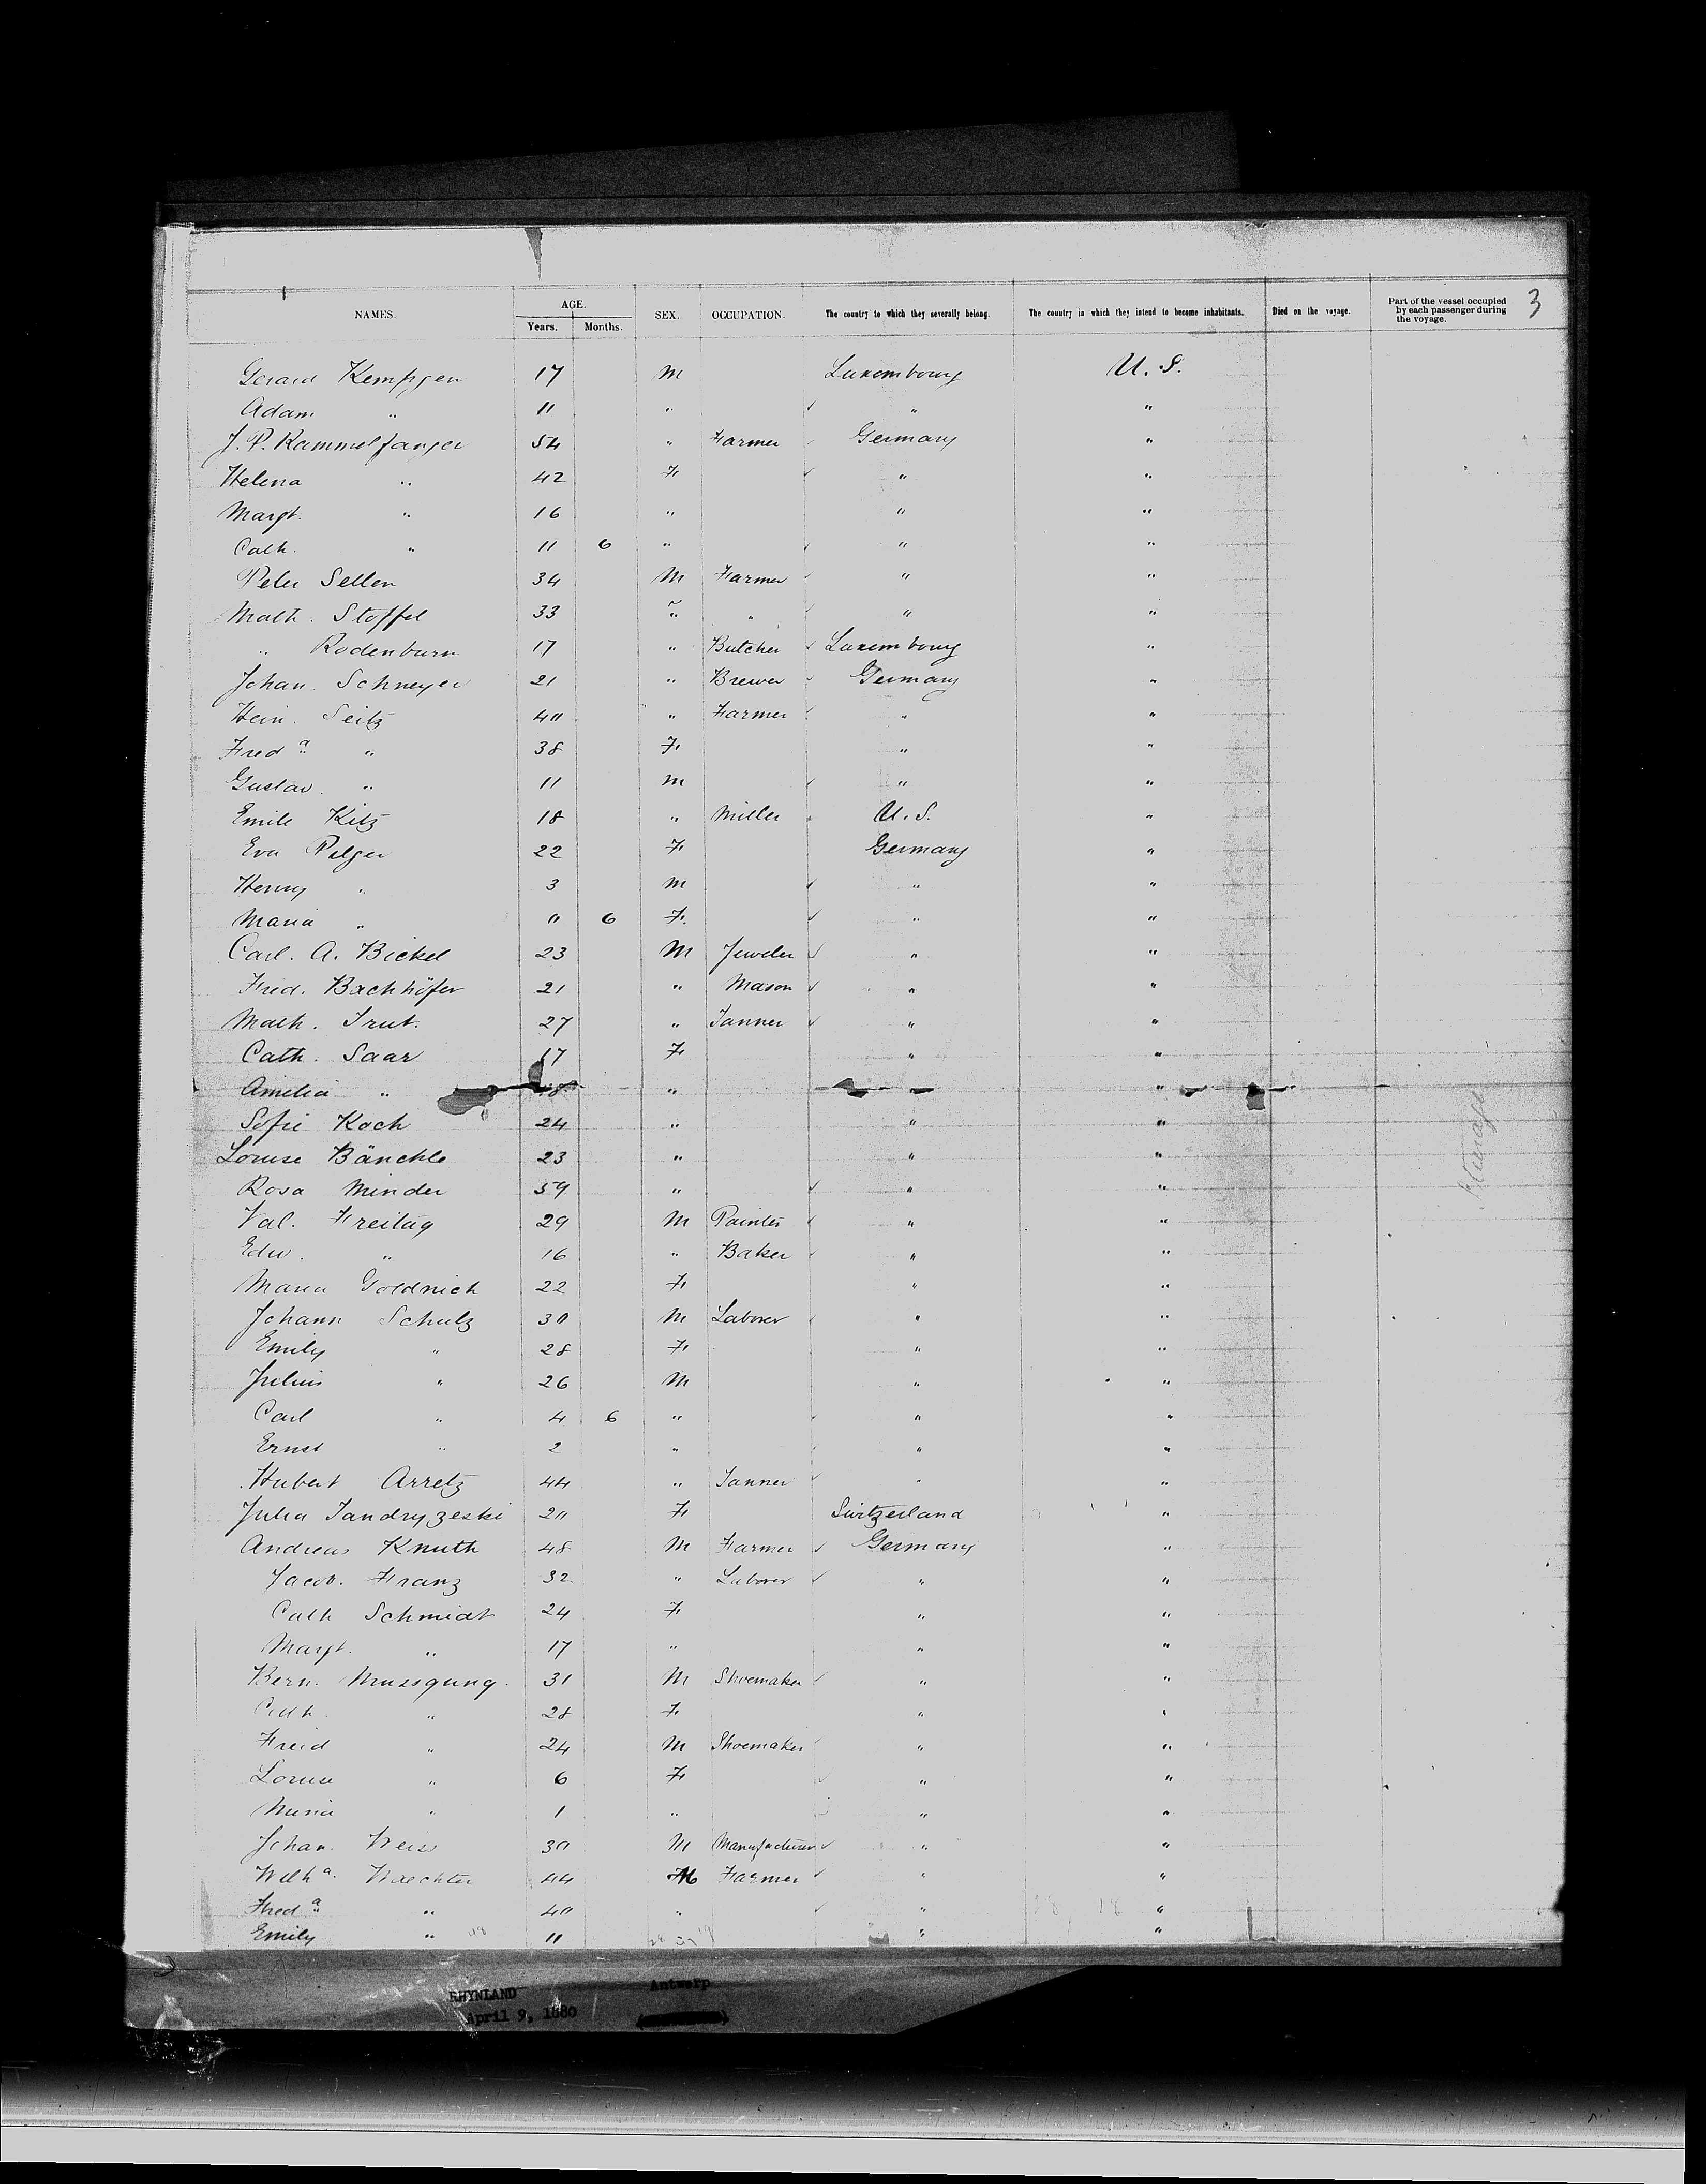 3
NAMES. AGE. SEX. OCCUPATION. The country to which they severally belong. The country in which they intend to become inhabitants. Died on the voyage. Part of the vessel occupied by each passenger during the voyage.
Years. Months.
Gerard Kempgen 17 M Luxembourg U.S.
Adam " 11 " " "
J. P. Rammelfanger 54 " Farmer Germany "
Helena " 42 F " "
Margt. " 16 " " "
Cath. " 11 6 " " "
Peter Sellen 34 M Farmer " "
Math. Stoffel 33 " " " "
" Rodenburn 17 " Butcher Luxembourg "
Johan Schneyer 21 " Brewer Germany "
Hein. Seitz 40 " Farmer " "
Fred a " 38 F " "
Gustav. " 11 M " "
Emile Kitz 18 " Miller U.S. "
Eva Pelger 22 F Germany "
Henry " 3 M " "
Maria " 0 6 F. " "
Carl. A. Bickel 23 M Jeweler " "
Fred. Bachhöfer 21 " Mason " "
Math. Trut. 27 " Tanner " "
Cath. Saar 17 F " "
Amelia " 18 " "
Sofie Koch 24 " " "
Louise Bänchle 23 " " "
Rosa Minder 59 " " "
Val. Freitag 29 M Painter " "
Edw. " 16 " Baker " "
Maria Goldnich 22 F " "
Johann Schulz 30 M Laborer " "
Emily " 28 F " "
Julius " 26 M " "
Carl " 4 6 " " "
Ernst " 2 " " "
Hubert Arretz 44 " Tanner " "
Julia Tandryzeski 20 F Switzerland "
Andreas Knuth 48 M Farmer Germany "
Jacob. Franz 32 " Laborer " "
Cath Schmidt 24 F " "
Margt. " 17 " " "
Bern. Mussgung. 31 M Shoemaker " "
Cath. " 28 F " "
Freid " 24 M Shoemaker " "
Louise " 6 F " "
Mina " 1 " " "
Johan. Weiss 30 M Manufacturer " "
Wilh a. Waechter 44 M Farmer " "
Fred a " 40 " " "
Emily " 11 " "
Steerage
RHYNLAND Antwerp
April 9, 1880